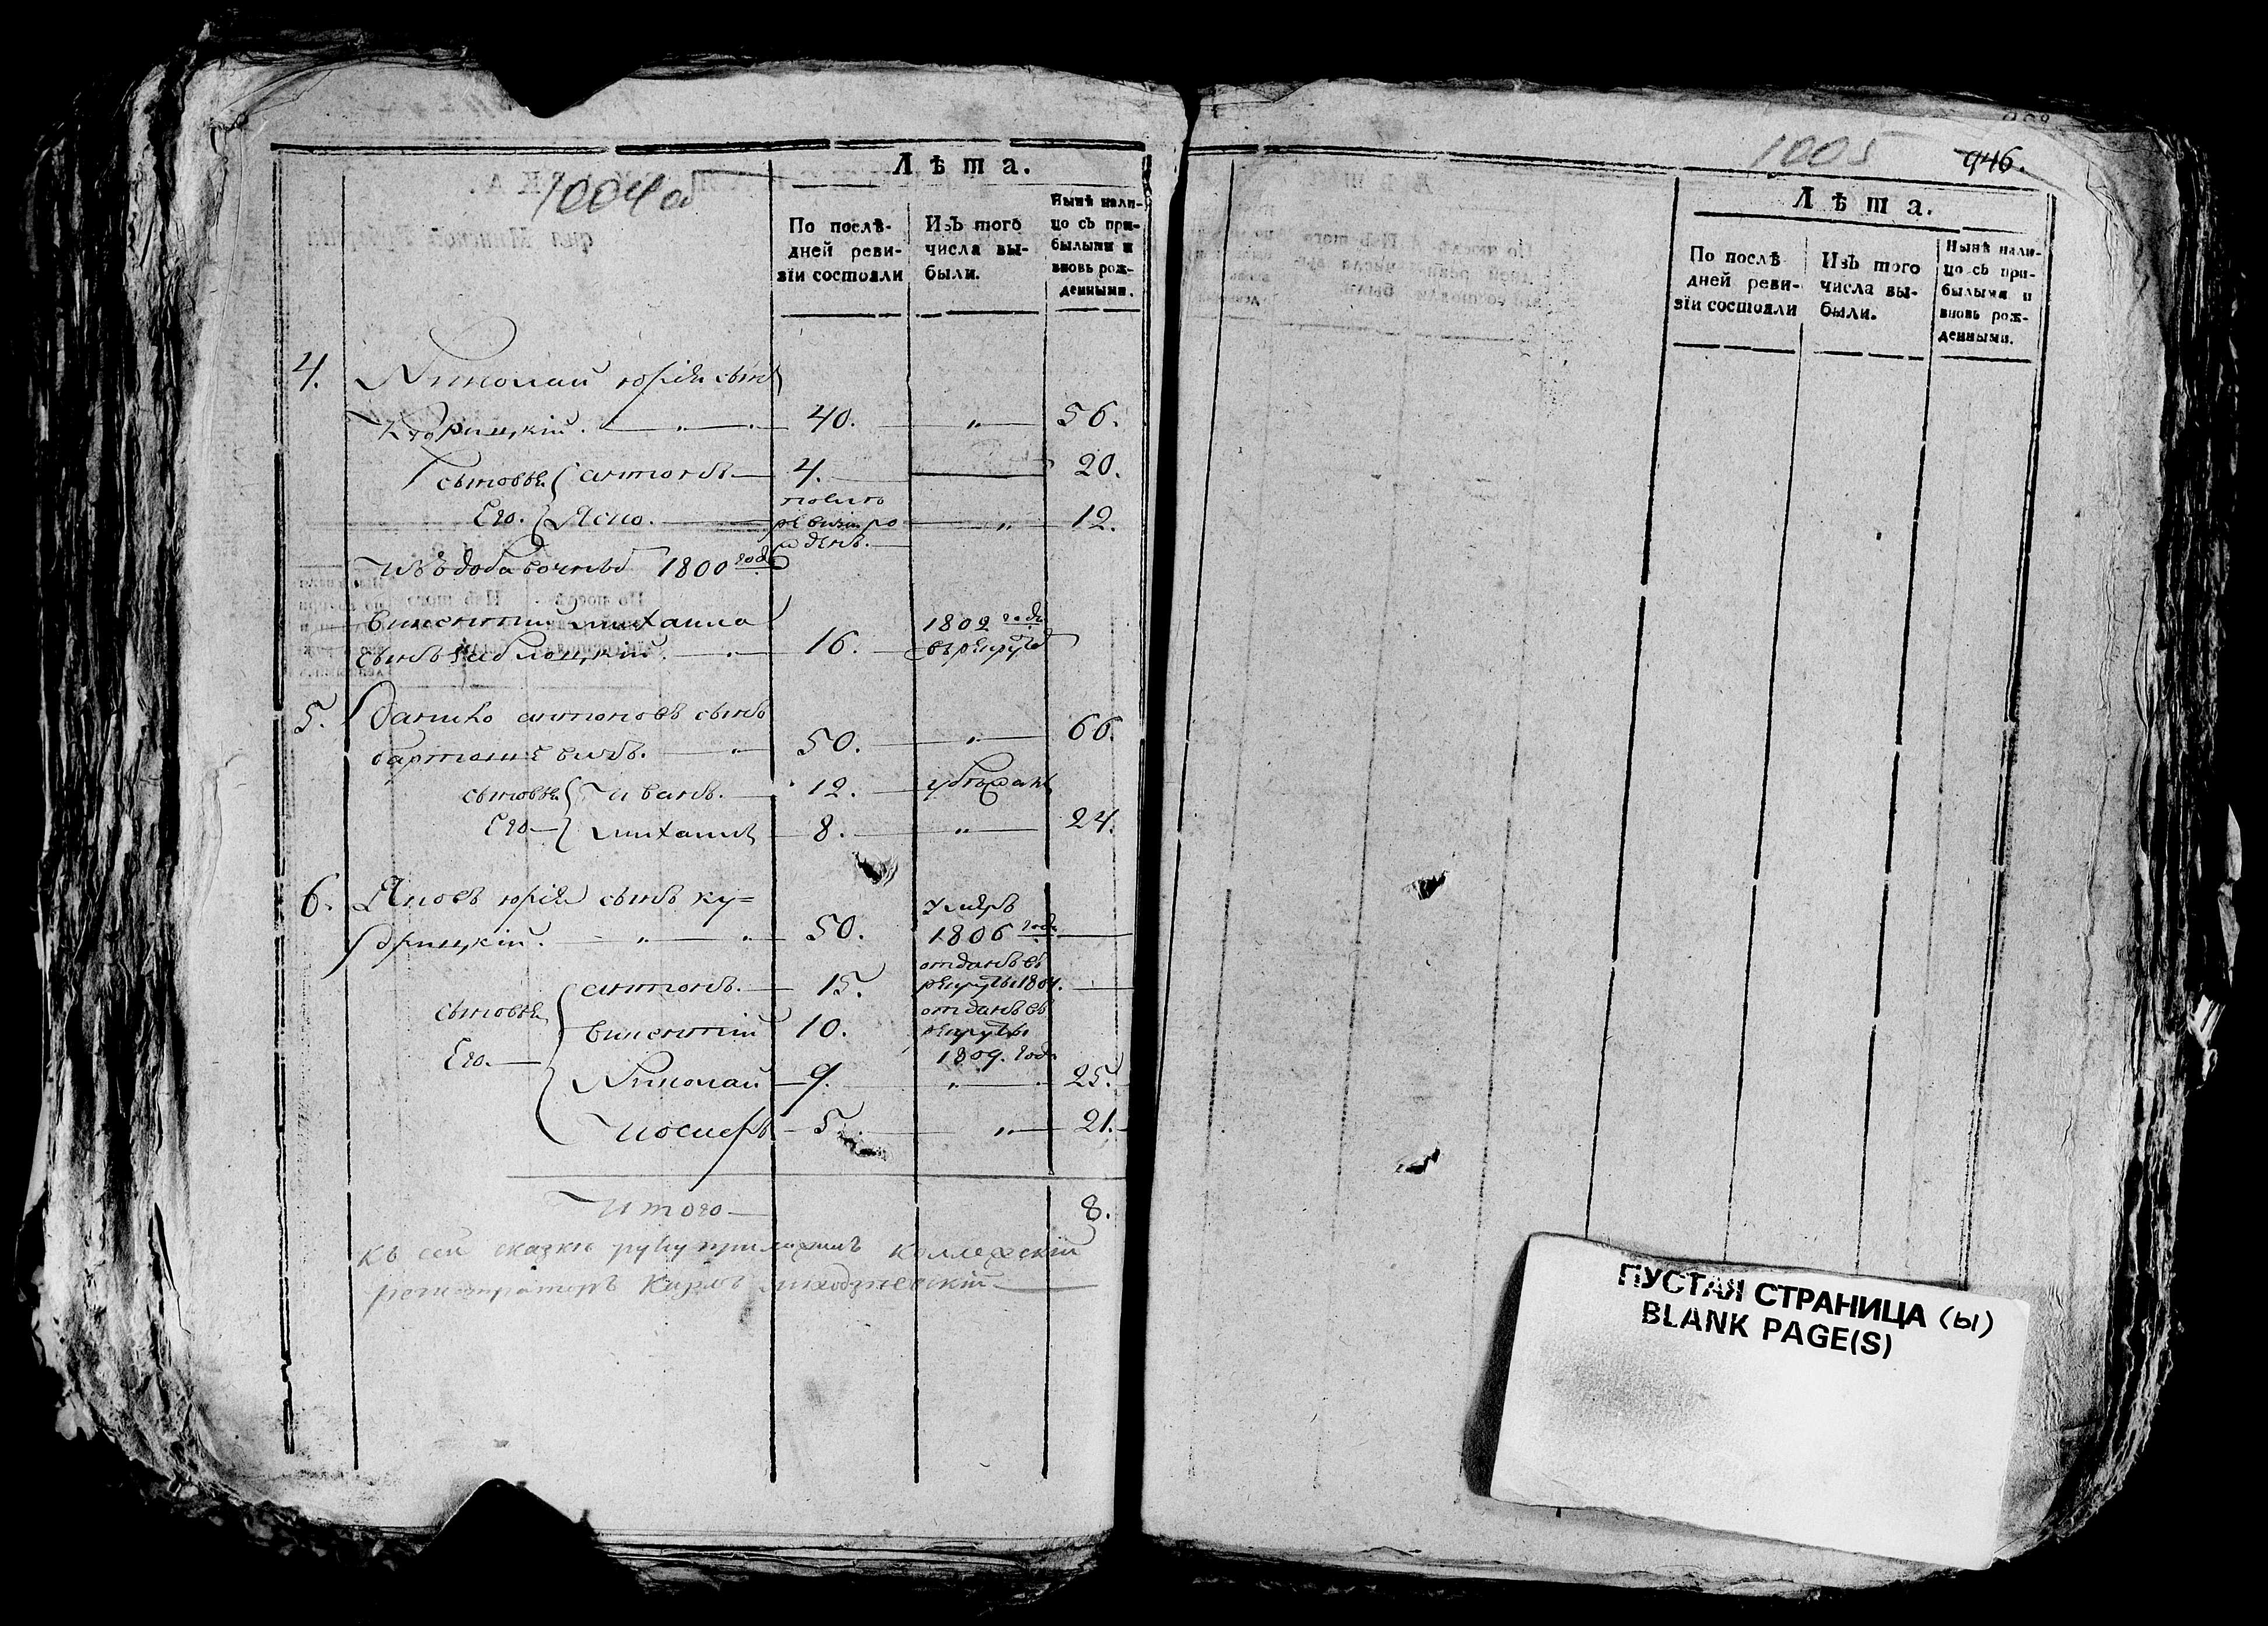 1004об
Лѣта.
По послѣ-
дней реви-
зіи состояли
Изъ того
числа вы-
были.
Нынѣ нали-
цо съ при-
былыми и
вновь рож-
денными.
4. Николай юрія сынъ
Кудрицкій. 40. „ 56.
сыновья антонъ 4. 20.
Его. После ревизіи рожденъ. „ 12.
Изъ добавочныхъ 1800 года
винсентій михаила
сынъ 16. 1802 года въ рекруты
5. Данило антоновъ сынъ
50. „ 66.
сыновья Иванъ. 12.
Его михаилъ 8. „ 24.
6. Яковъ юрія сынъ ку=
дрицкій. „ „ 50. умеръ 1806 года
сыновья антонъ. 15. отданъ въ рекруты
винсентій 10. отданъ въ рекруты 1809. года
Его. Николай 9. „ 25.
Иосифъ 5. „ 21.
Итого 8.
Къ сей сказке руку приложилъ Коллежскій
регистраторъ Карлъ
1005
946.
Лѣта.
По послѣ-
дней реви-
зіи состояли
Изъ того
числа вы-
были.
Нынѣ нали-
цо съ при-
былыми и
вновь рож-
денными.
ПУСТАЯ СТРАНИЦА (Ы)
BLANK PAGE(S)